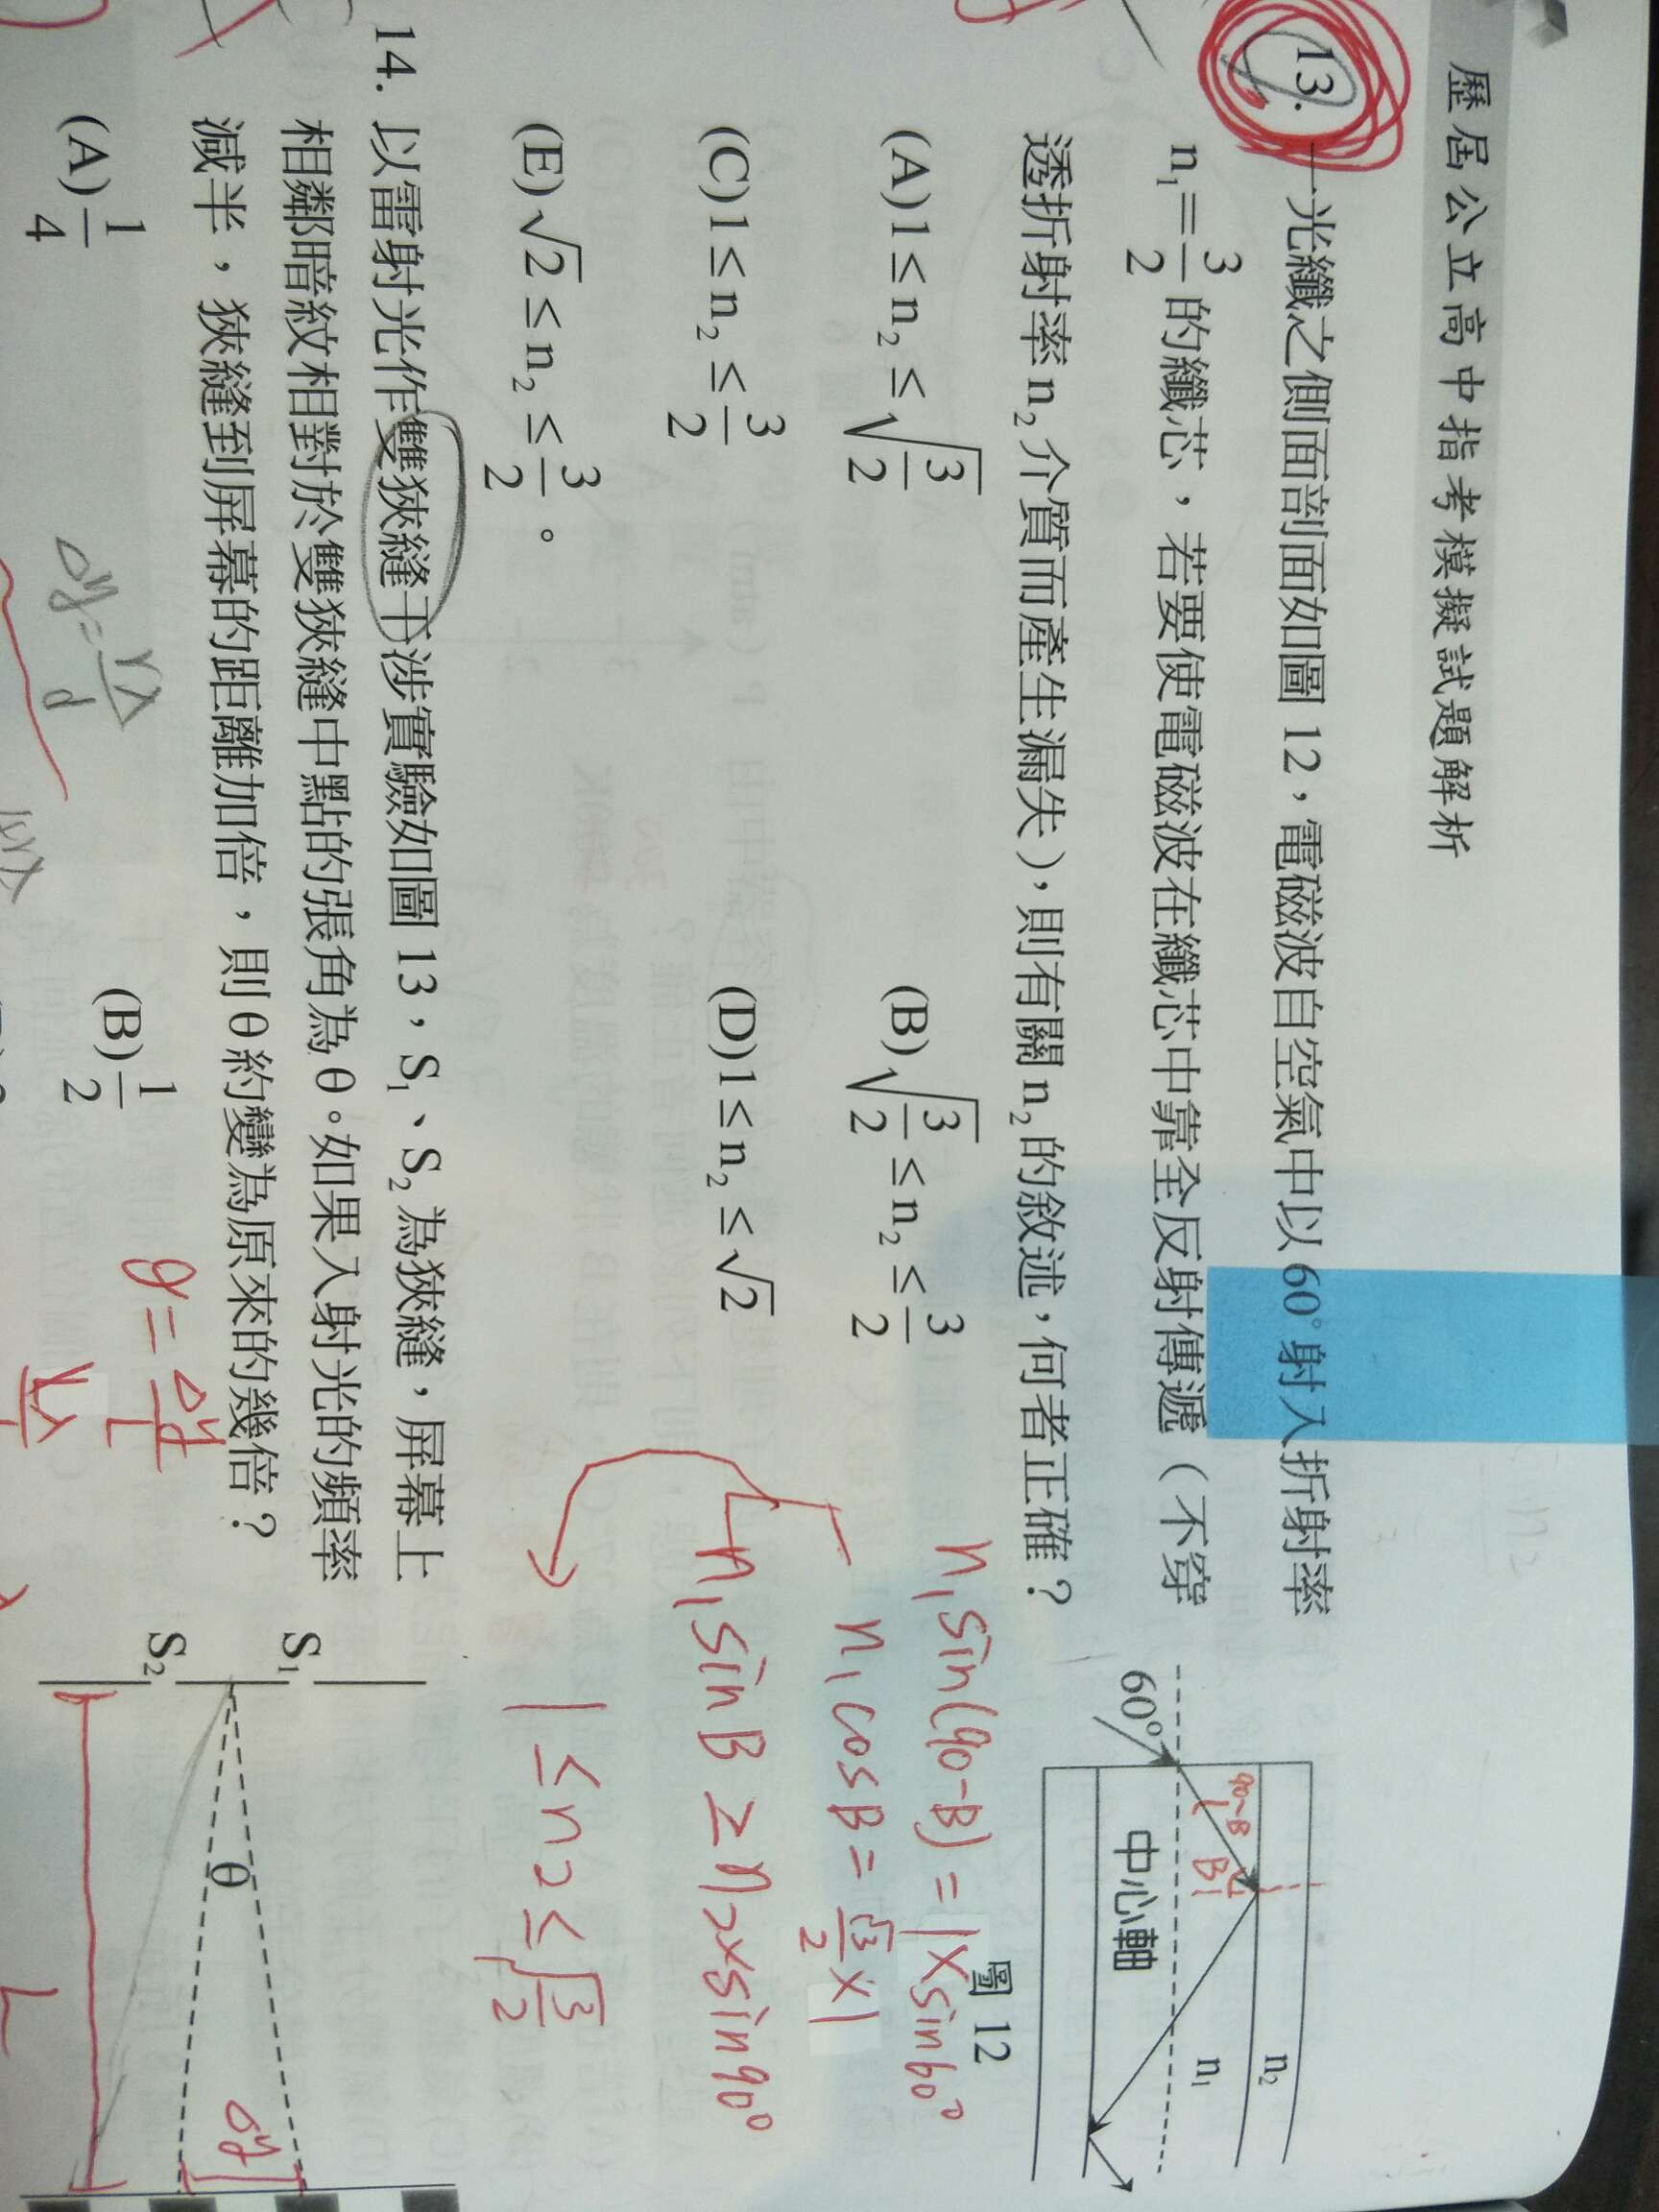 歷屆公立高中指考模擬試題解析
13. 一光纖之側面剖面如圖 12，電磁波自空氣中以 60° 射入折射率
n₁=3/2 的纖芯，若要使電磁波在纖芯中靠全反射傳遞（不穿
透折射率 n₂ 介質而產生漏失），則有關 n₂ 的敘述，何者正確？
(A)1≤n₂≤√(3/2) (B)√(3/2)≤n₂≤3/2
(C)1≤n₂≤3/2 (D)1≤n₂≤√2
(E)√2≤n₂≤3/2。
n₂
n₁
60°
中心軸
90-B
B
圖 12
n₁sin(90-B)=1×sin60°
n₁cosB=√3/2×1
n₁sinB≥n₂×sin90°
1≤n₂≤√(3/2)
14. 以雷射光作雙狹縫干涉實驗如圖 13，S₁、S₂ 為狹縫，屏幕上
相鄰暗紋相對於雙狹縫中點的張角為 θ。如果入射光的頻率
減半，狹縫到屏幕的距離加倍，則 θ 約變為原來的幾倍？
(A)1/4 (B)1/2
Δy=rλ/d
θ=Δy/L
S₁
S₂
θ
Δy
L